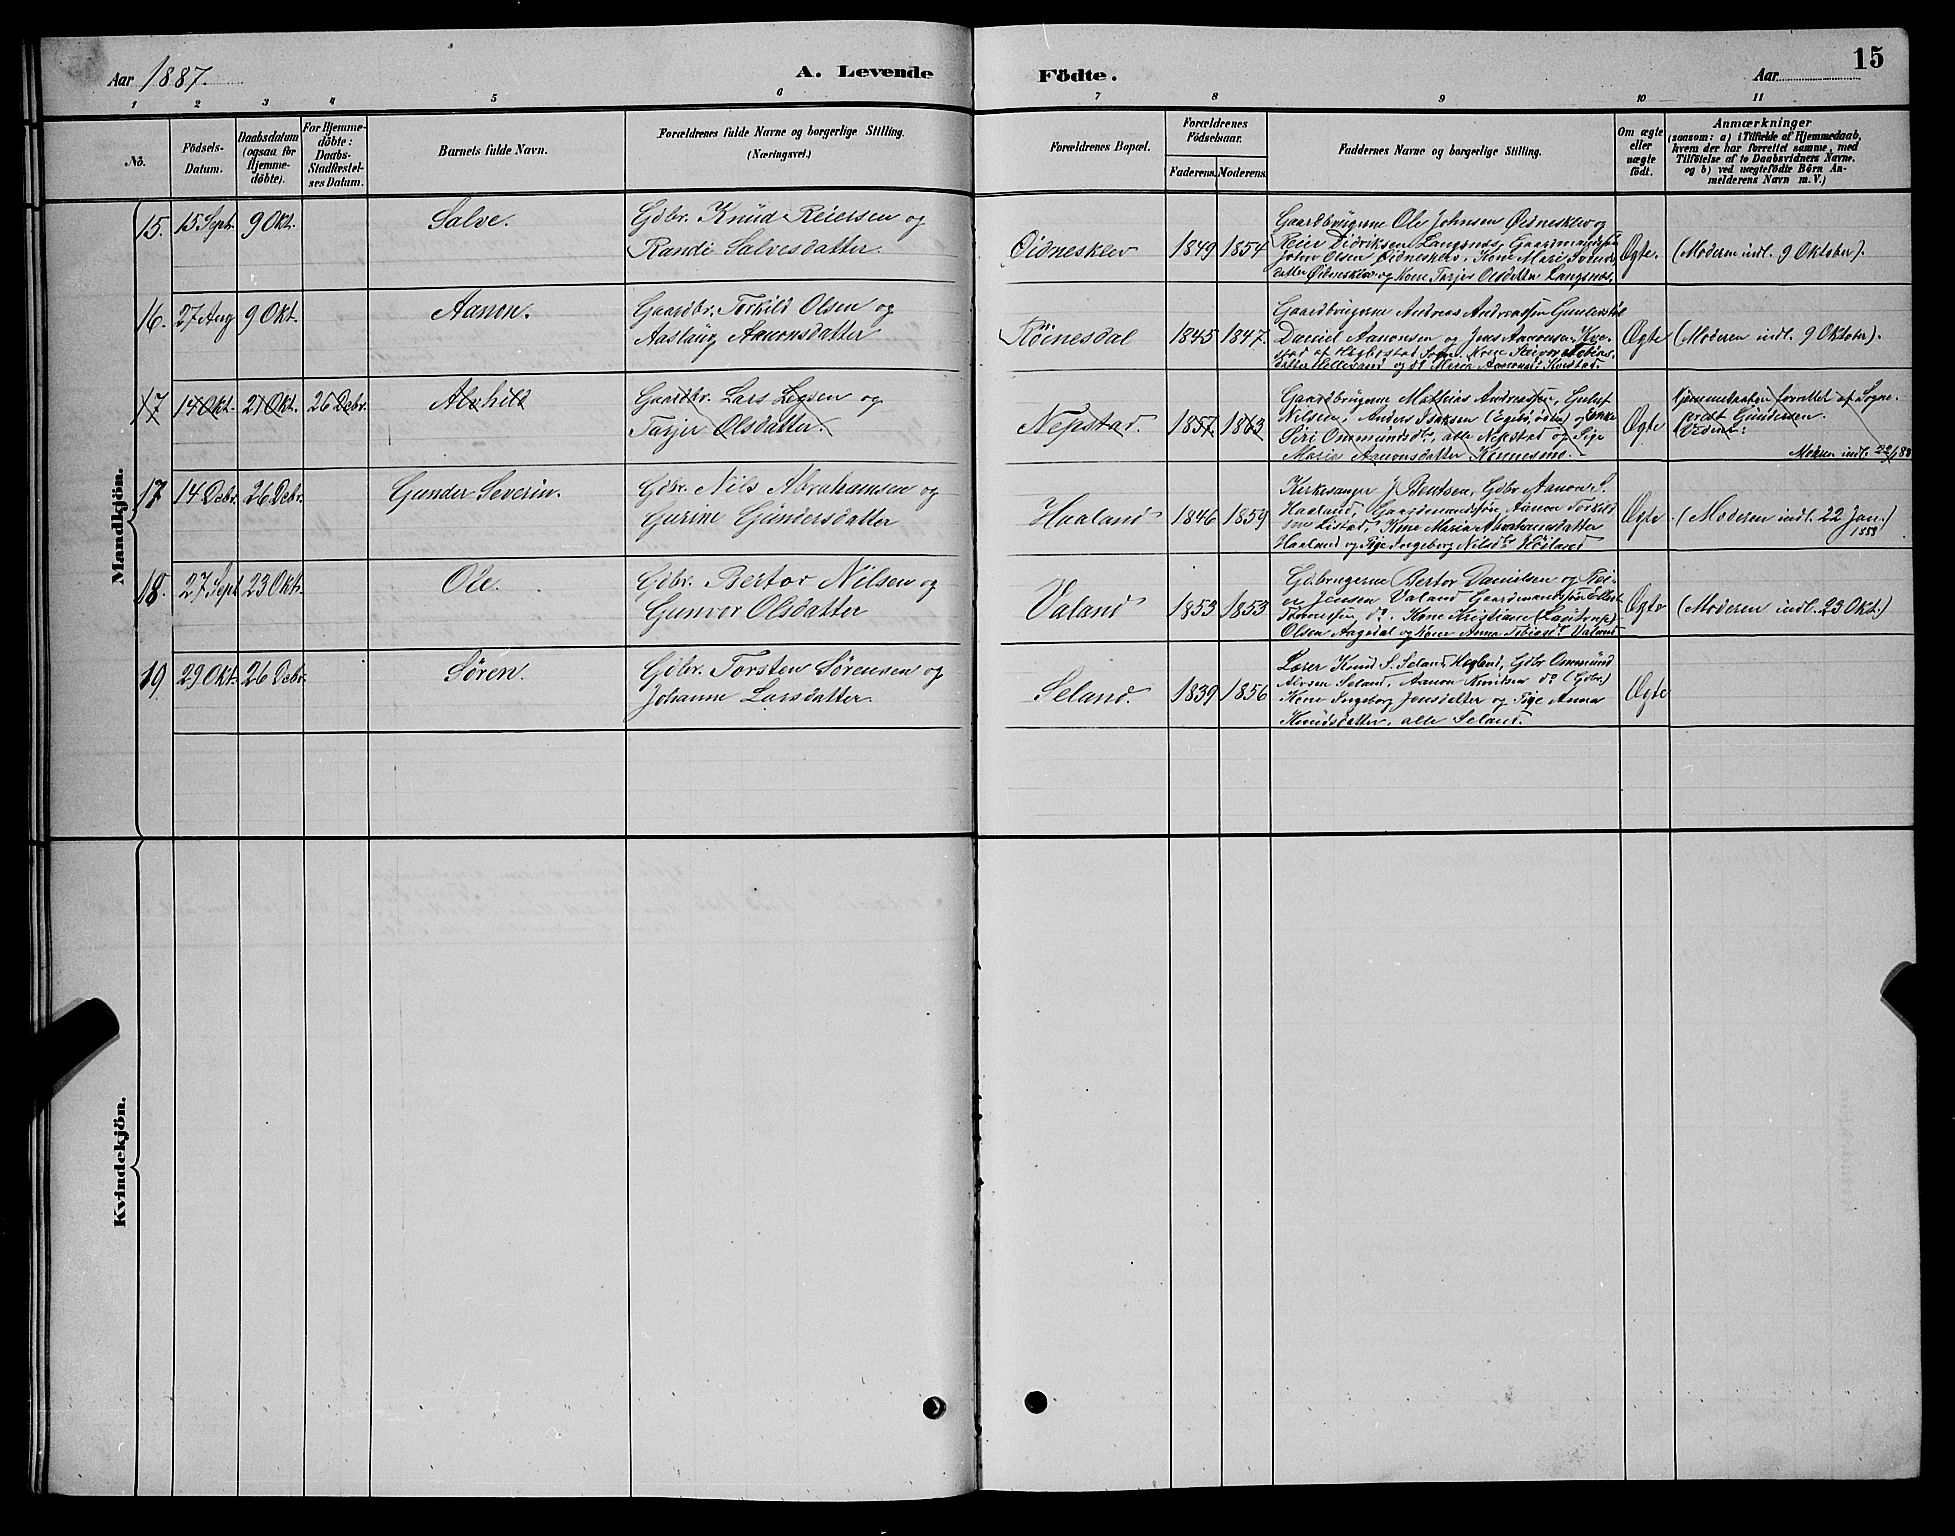 15
Aar 1887.
A. Levende Födte.
Aar
1 2 3 4 5 6 7 8 9 10 11
Nô.
Födsels-
Datum.
Daabsdatum
(ogsaa for
Hjemme-
döbte).
For Hjemme-
döbte:
Daabs-
Stadfæstel-
ses Datum.
Barnets fulde Navn.
Forældrenes fulde Navne og borgerlige Stilling.
(Næringsvei.)
Forældrenes Bopæl.
Forældrenes
Födselsaar.
Faderens. Moderens.
Faddernes Navne og borgerlige Stilling.
Om ægte
eller
uægte
födt.
Anmærkninger
(saasom: a) i Tilfælde af Hjemmedaab,
hvem der har forrettet samme, med
Tilföielse af to Daabsvidners Navne.
og b) ved uægtefödte Börn An-
melderens Navn m. V.)
Mandkjön.
15. 15 Sept. 9 Okt. Salve.
Gdbr. Knud Reiersen og
Randi Salvesdatter.
Øidnesklev 1849 1854
Gaardbrugerne Ole Johnsen Øidnesklev og
Reier Didriksen Langsnæs, Gaardmandssøn
John Olsen Øidnesklev, Kone Mari
datter Øidnesklev og Kone Tarjer Olsdatter Langsnæs.
Ægte. (Moderen indl. 9 Oktober).
16. 27 Aug 9 Okt. Aanon.
Gaardbr. Torkild Olsen og
Aaslaug Aanonsdatter
Röinesdal 1845 1847.
Gaardbrugerne Andreas Andreassen
Daniel Aanonsen og Jens Aanonsen
af Hægbostad Sogn, Kone
datter Helleland og do Maria Aanonsd.
Ægte (Moderen indl. 9 Oktober).
17 14 Okt. 21 Okt. 26 Debr. Alvhild
Gaardbr. Lars Legsen og
Tarjer Olsdatter.
Nepstad. 1857. 1863
Gaardbrugerne Mathias Andreassen, Gustav
Nilsen, Anders Isaksen (Egenøden) og Enke
Siri Ommundsdr, alle Nepstad og Pige
Maria Aanonsdatter Konnesmo.
Ægte
Hjemmedaaben forrettet af Sogne-
præst Gundersen.
Vidner:
Moren indl. 22/1 88
17 14 Debr. 26 Debr. Gunder Severin.
Gdbr. Nils Abrahamsen og
Gurine Gundersdatter
Haaland 1846 1859
Kirkesanger J. Bentsen, Gdbr Aanon S.
Haaland, Gaardmandssøn Aanon Torkild
sen Listad, Kone Maria Abrahamsdatter
Haaland og Pige Ingeborg Nilsdr Höiland
Ægte (Moderen indl. 22 Jan.)
1888
18. 27 Sept 23 Okt. Ole.
Gdbr. Bertor Nilsen og
Gunvor Olsdatter
Valand 1853 1853
Gdbrugerne Bertor Danielsen og Rei-
er Jensen Valand Gaardmandssøn
Tönnessen do. Kone Kristiane
Olsen Aagedal og Kone Anna Tobiasdr Valand
Ægte (Moderen indl. 23 Okt.)
19 29 Okt. 26 Debr. Søren.
Gdbr. Torsten Sørensen og
Johanne Larsdatter.
Seland. 1839 1856
Lærer Knud S. Seland, Gdbr Ommund
Alvsen Seland, Aanon Knutsen do (Gdbr.)
Kone Ingeborg Jensdatter og Pige Anna
Knudsdatter, alle Seland.
Ægte
Kvindekjön.